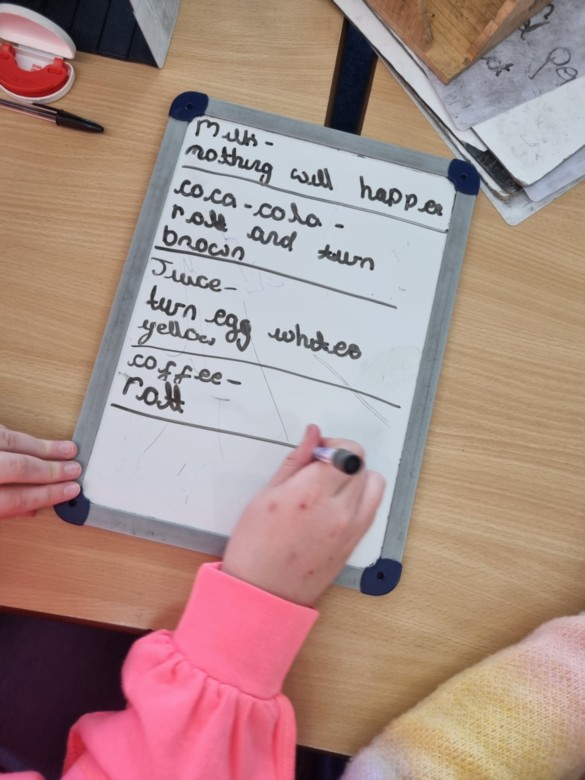 Milk-
nothing will happen
coca-cola-
rott and turn
brown
Juice-
turn egg whites
yellow
coffee-
rott